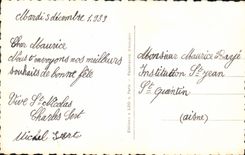 Mardi 5 décembre 1933
Cher Maurice
Nous t'envoyons nos meilleurs
souhaits de bonne fête
Vive St Nicolas
Charles Sort
Michel Sort
Monsieur Maurice
Institution St Jean
St Quentin
(aisne)